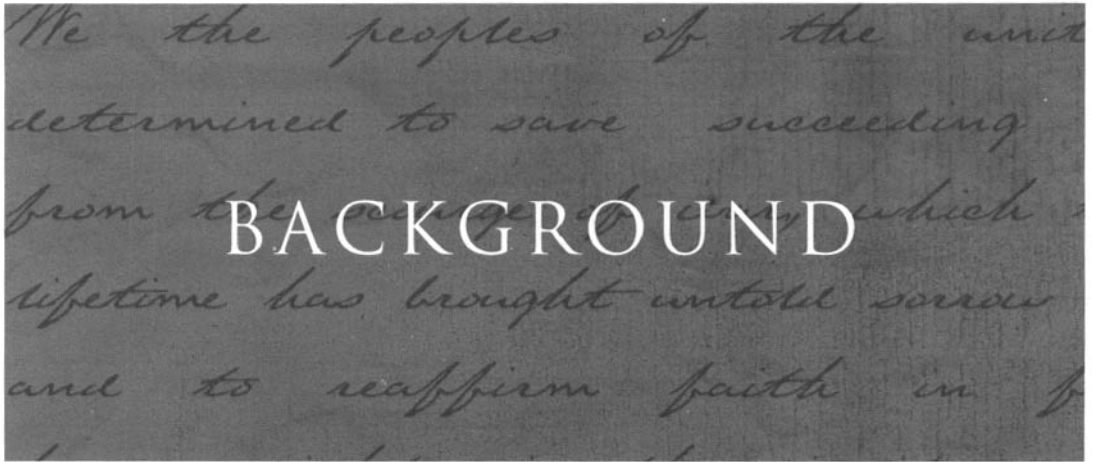 We the peoples of the unit
determined to save succeeding
from the scourge of war, which
BACKGROUND
lifetime has brought untold sorrow
and to reaffirm faith in f